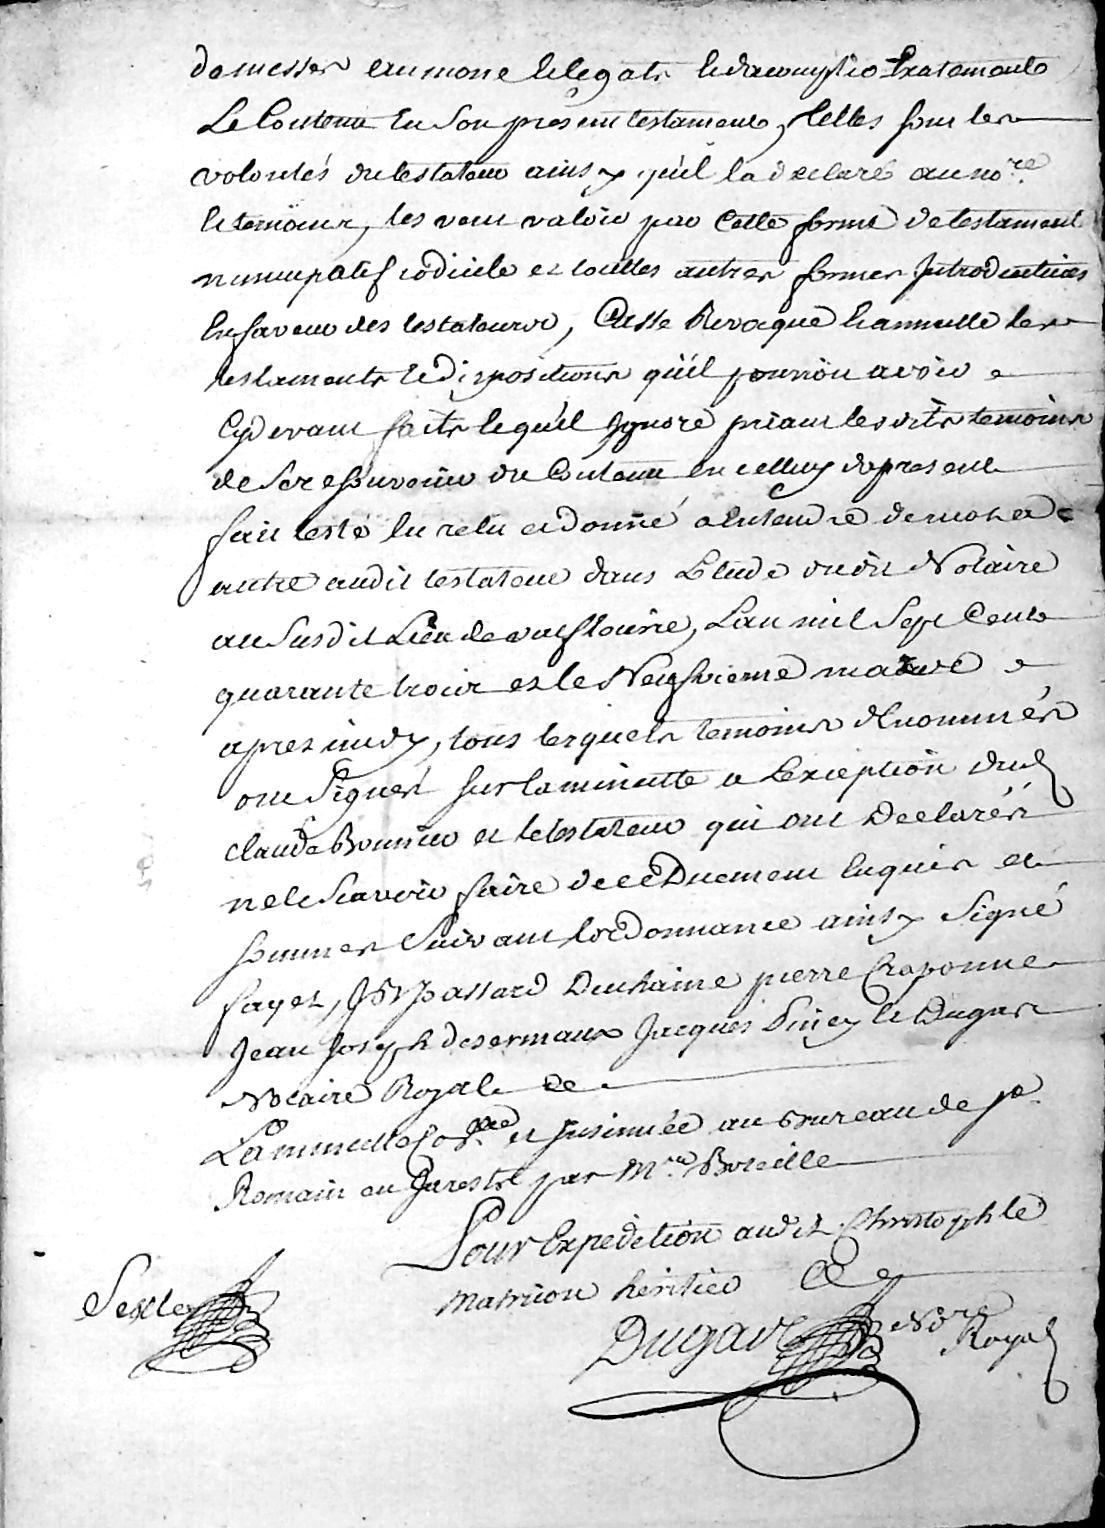 de messes aumone et legats et daccomplir exatement
Le Contenu en son present testament, telles sont les
volontés du testateur ainsy qu'il la declaré au no.re
et temoins, les veut valoir par Cette forme de testament
nuncupatif codicile et touttes autres formes Introduittes
En faveur des testateurs, Casse Revoque et annulle les
testaments et dispositions qu'il pourroit avoir
Cy devant faits et qu'il Ignore priant lesdits temoins
de se resouvenir du Contenu en celluy de present
fait testé lu relu et donné a entendre de mot a
autre audit testateur dans Letude dudit Notaire
au Susdit Lieu de valfleurie, Lan mil Sept Cent
quarante trois et le Neufvieme mars
apres midy, tous lesquels temoins denommés
ont Signés sur la minutte a Lexception dud
claude Bonnier et le testateur qui ont Declarés
ne le Scavoir faire de ce Duement Enquis et
sommes Suivant lordonnance ainsy Signé
fayet, passard Duchaine pierre Craponne
Jean Joseph desermaux Jacques piney et Dugas
Notaire Royal
La minutte Co.lée et Insinuée au Bureau de S.t
Romain en Jarestz par M.re Boseille
Pour Expedition audit Christophle
Matricon heritier
Dugas No.re
Royal